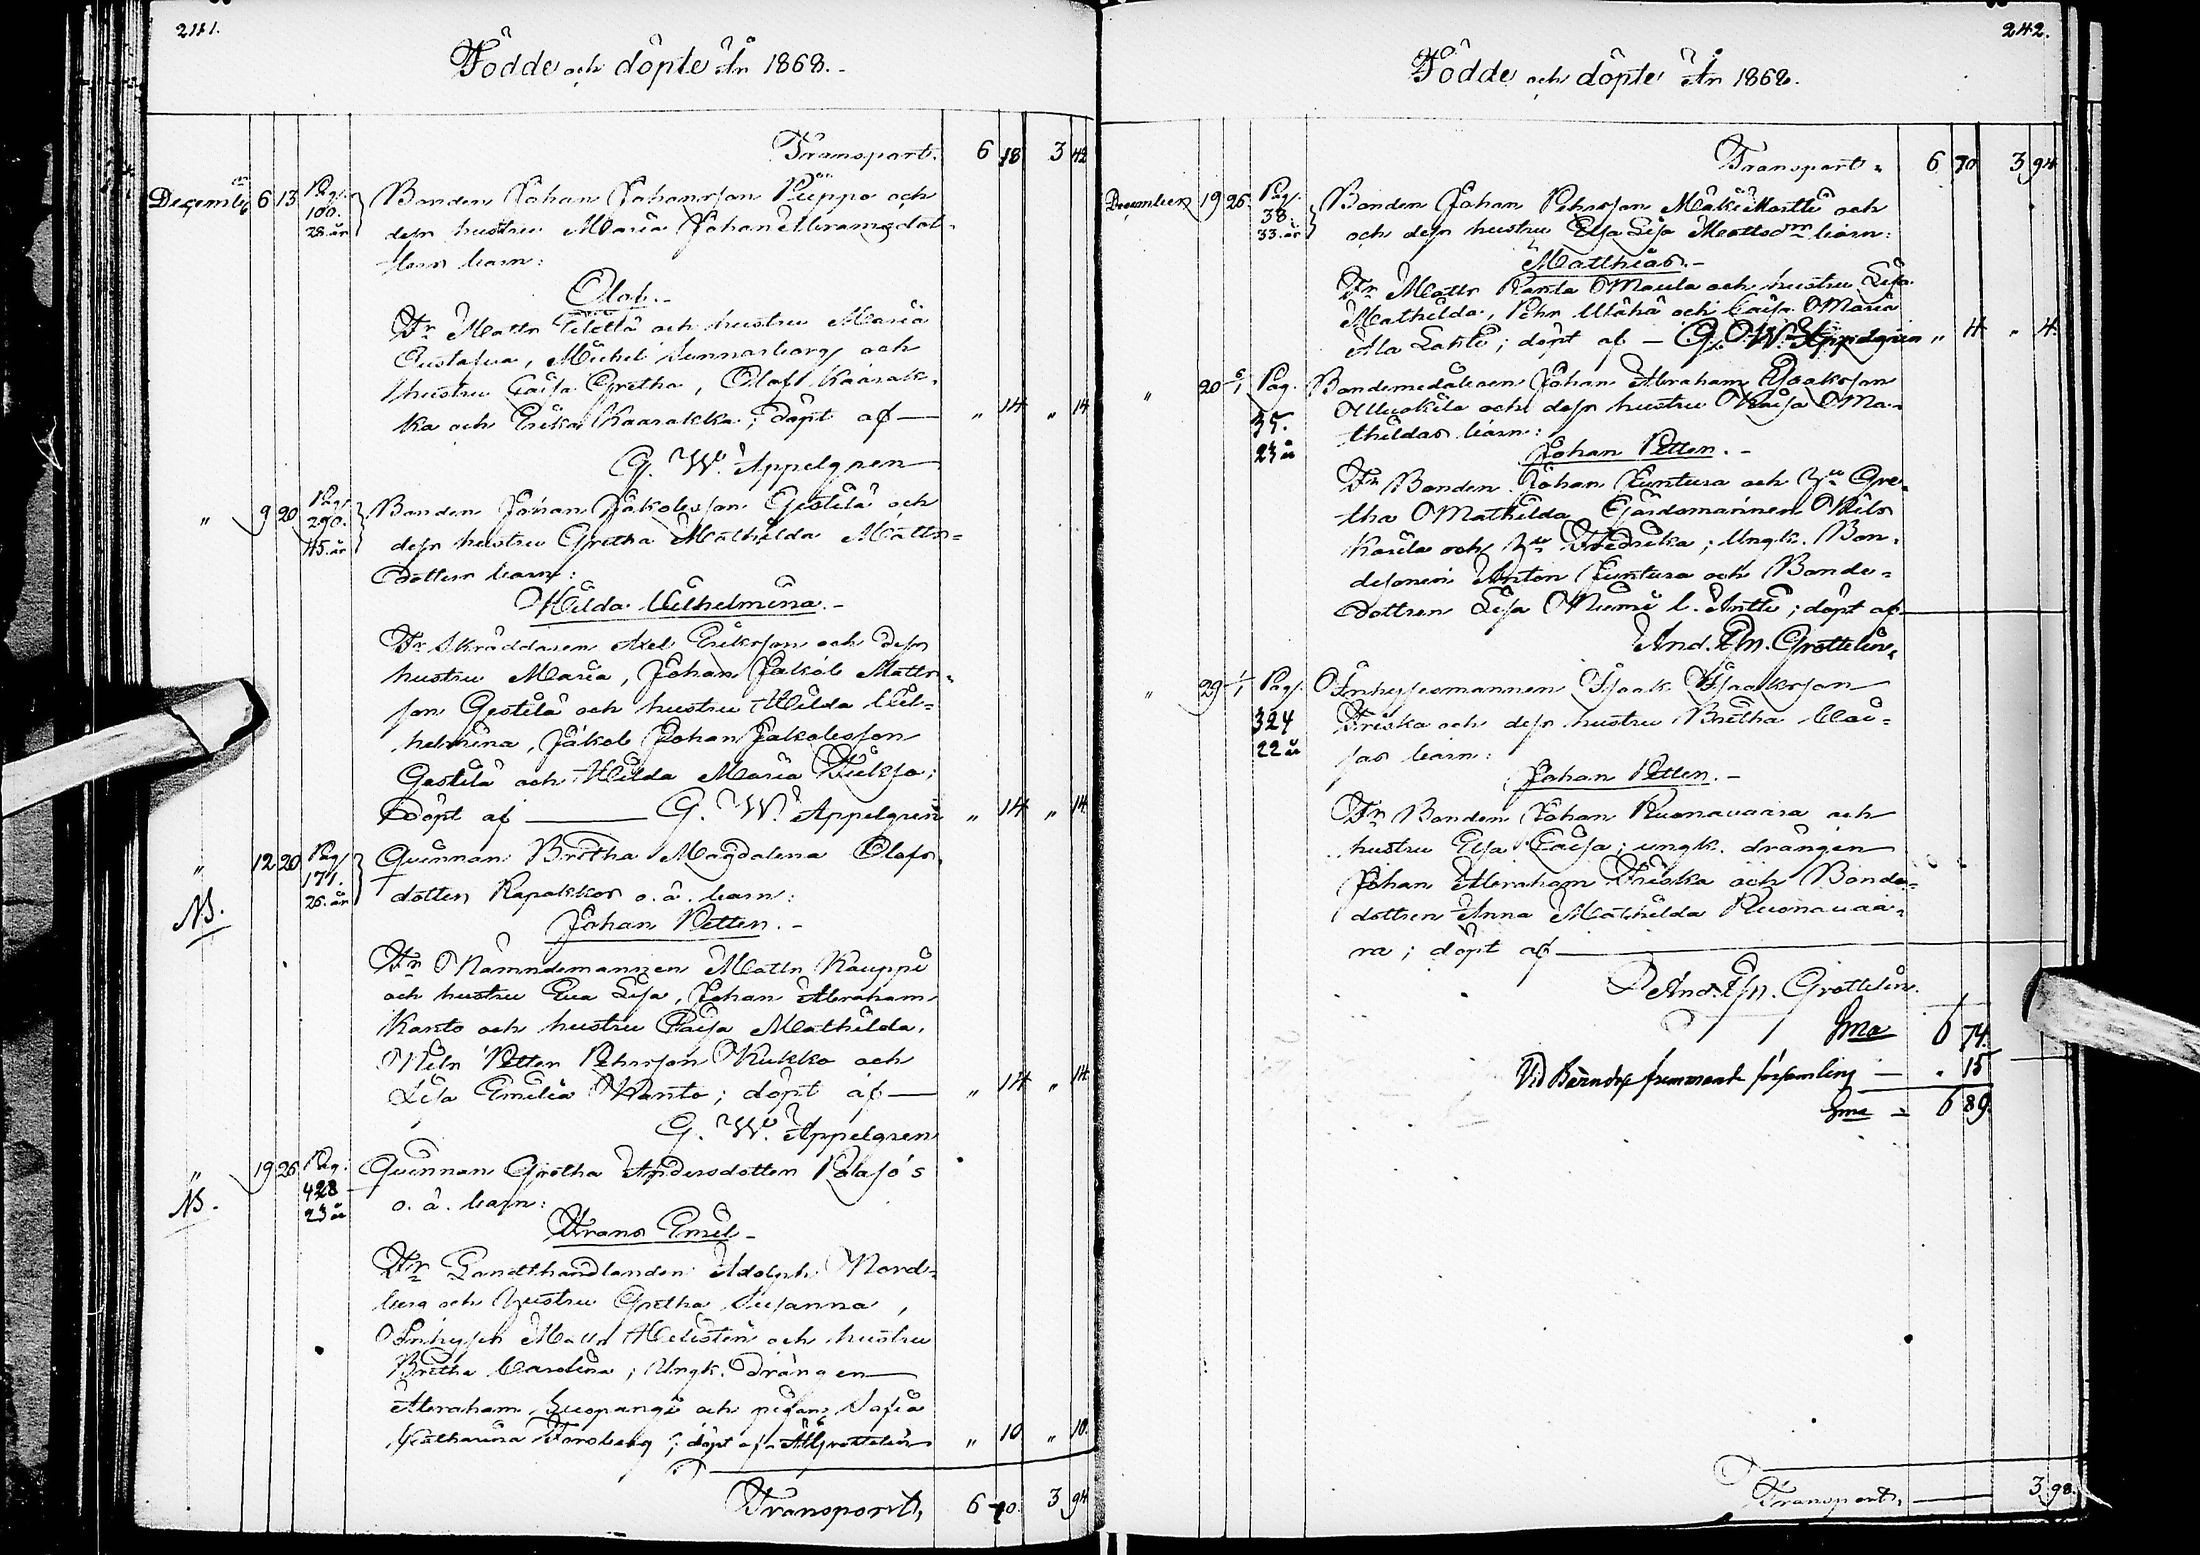 241.
Födde och döpte År 1868.-
Transport. 6 18 3 42
December 6 13 Pag. 100. 28. år Bonden Johan Johansson Piippo och
dess hustru Maria Johan Abramsdot-
ters barn:
Olof.-
Fr Matts och hustru Maria
Gustafva, Michel Sunnarborg och
hustru Caisa Gretha, Olof Kaarak-
ka och Erika Kaarakka; döpt af — " 14 " 14
G. W. Appelgren
" 9 20 Pag. 290. 45. år Bonden Johan Jakobsson Gestilä och
dess hustru Gretha Mathilda Matts=
dotters barn:
Hilda Vilhelmina.-
Fr Skräddaren Axel Eriksson och dess
hustru Maria, Johan Jakob Matts-
son Gestilä och hustru Hilda Vil=
helmina, Jakob Johan Jakobsson
Gestilä och Hilda Maria;
Döpt af — G. W. Appelgren " 14 " 14
" 12 20 Pag. 171. 26. år Qvinnan Britha Magdalena Olofs-
NB. dotter Rapakkos o. ä. barn:
Johan Petter.-
Fr Nämndemannen Matts Kauppi
och hustru Eva Lisa, Johan Abraham
Kanto och hustru Caisa Mathilda,
Nils Petter Pehrsson Kukko och
Lisa Emilia Kanto; döpt af — " 14 " 14
G. W. Appelgren
" 19 26 Pag. 428 23 år Qvinnan Gretha Andersdotter
NB. o. ä. barn:
Frans Emil-
Fr Landthandlanden Adolph Nord=
berg och hustru Gretha Susanna,
Inhyses Matts och hustru
Britha Carolina; Ungk. Drängen
Abraham Luopango och pigan Sofia
Katharina Forsberg; döpt af " 10 " 10.
Transport, 6 70. 3 94
242.
Födde och döpte År 1868.
Transport. 6 70 3 94.
December 19 26 Pag. 38. 33. år Bonden Johan Pehrsson MäkiMartti och
och dess hustru Elsa Lisa Mattsdr barn:
Matthias.-
Fr Matts Ranta Maula och hustru Lisa
Mathilda, Pehr och Caisa Maria
Ala Lahti; döpt af — G. W. Appelgren " 4 " 4.
" 20 6/1 Pag. 35. 23 år Bondemedålaren Johan Abraham Isaksson
och dess hustru Kaisa Ma-
thildas barn:
Johan Petter.-
Fr Bonden Johan Juntura och Hu Gre-
tha Mathilda Gårdsmannen Nils
och Hu Fredrika; Ungk. Bon-
desonen Anton Juntura och Bonde=
dottren Lisa Niemi l. Antti; döpt af
And. Em. Grottelin.
" 29 1/1 Pag. 324 22 år Inhysesmannen Isaak Isaaksson
Friska och dess hustru Britha Cai=
sas barn:
Johan Petter.-
Fr Bonden Johan Ruonavaara och
hustru Elsa Caisa; ungk. drängen
Johan Abraham Friska och Bonde=
dottren Anna Mathilda Ruonavaa-
ra; döpt af —
And. Em. Grottelin.
Sma 6 74.
Vid främmande församling — " 15
Sma = 6 89.
Transport, — 3 98.